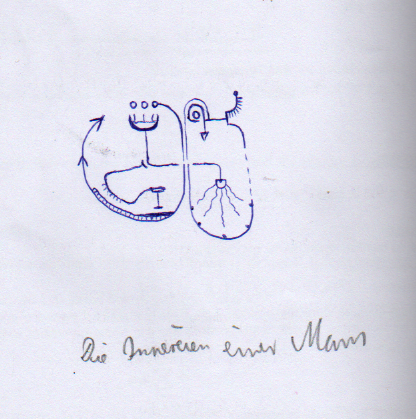 Die Innereien einer Maus